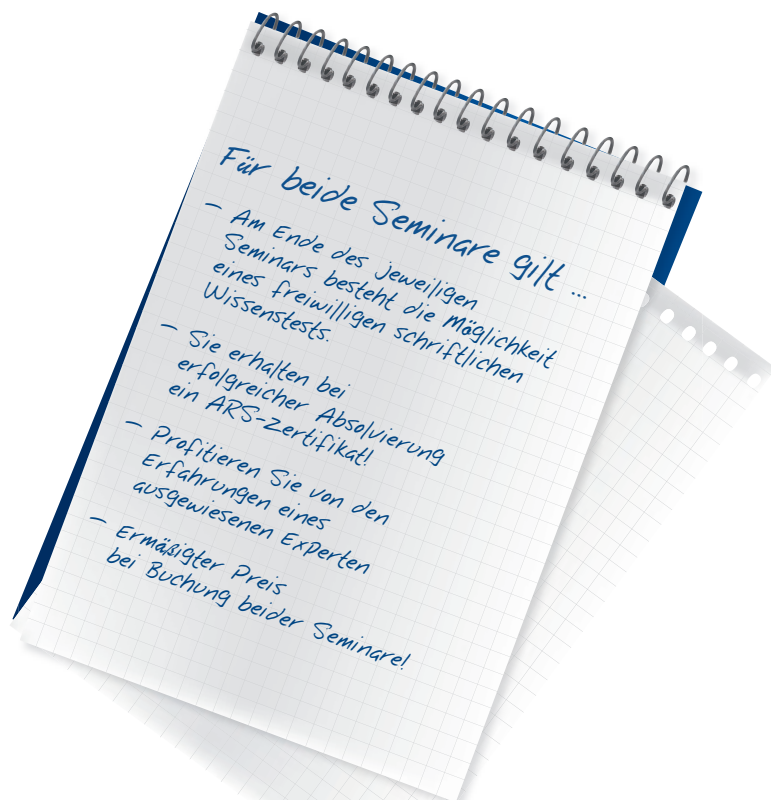 Für beide Seminare gilt ...
– Am Ende des jeweiligen
Seminars besteht die Möglichkeit
eines freiwilligen schriftlichen
Wissenstests.
– Sie erhalten bei
erfolgreicher Absolvierung
ein ARS-Zertifikat!
– Profitieren Sie von den
Erfahrungen eines
ausgewiesenen Experten
– Ermäßigter Preis
bei Buchung beider Seminare!